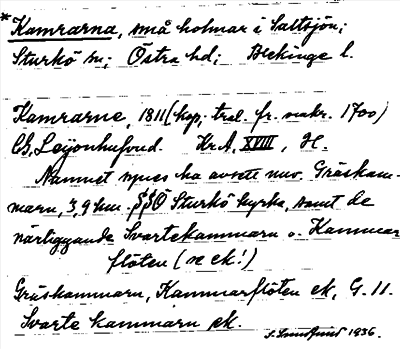 * Kamrarna, små holmar i Saltsjön;
Sturkö sn; Östra hd; Blekinge l.
Kamrarne, 1811 (kop; trol. fr. omkr. 1700)
Cb. Leijonhufvud. Kr.A. XVIII, H.
Namnet synes ha avsett nuv. Gråskam-
maru, 3,9 km. SSÖ Sturkö kyrka, samt de
närliggande Svartekammaru o. Kammar
flöten (se ek!)
Gråskammaru, Kammarflöten ek, G. 11.
Svarte kammaru ek.
1936.